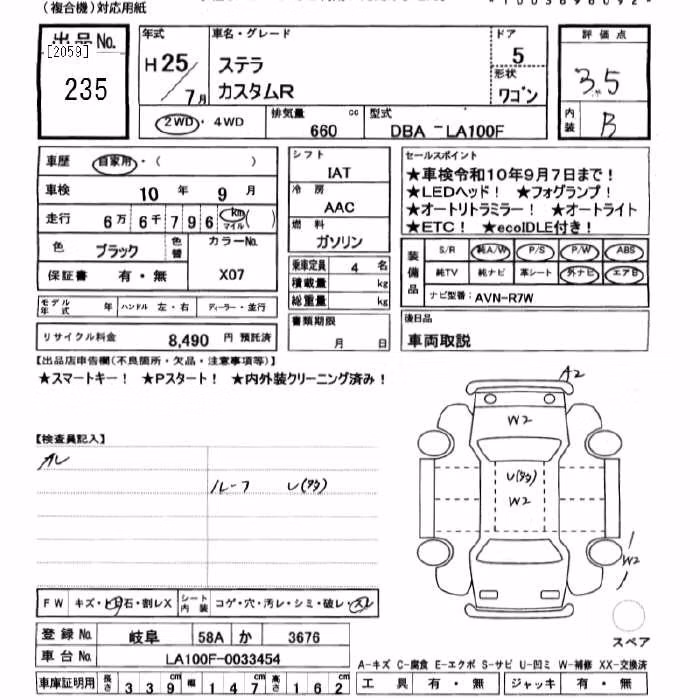 (複合機)対応用紙
出品No.
[2059]
235
年式
H25/7月
車名・グレード
ステラ
カスタムR
ドア
5
形状
ワゴン
評価点
3.5
内装
B
2WD・4WD
排気量
660 cc
型式
DBA-LA100F
車歴 自家用・( )
車検 10年 9月
走行 6万6千796 km マイル ( )
色 ブラック 色替 カラーNo.
保証書 有・無 X07
モデル年式 年 ハンドル 左・右 ディーラー・並行
リサイクル料金 8,490 円 預託済
シフト
IAT
冷房
AAC
燃料
ガソリン
乗車定員 4 名
積載量 kg
総重量 kg
書類期限
月 日
セールスポイント
★車検令和10年9月7日まで!
★LEDヘッド! ★フォグランプ!
★オートリトラミラー! ★オートライト
★ETC! ★ecoIDLE付き!
装備品
S/R 純A/W P/S P/W ABS
純TV 純ナビ 革シート 外ナビ エアB
ナビ型番: AVN-R7W
後日品
車両取説
【出品店申告欄(不良箇所・欠品・注意事項等)】
★スマートキー! ★Pスタート! ★内外装クリーニング済み!
【検査員記入】
ルーフ U(タタ)
A2
W2
U(タタ)
W2
W2
FW キズ・ヒ日石・割レX シート内装 コゲ・穴・汚レ・シミ・破レ・スレ
スペア
登録No. 岐阜 58A か 3676
車台No. LA100F-0033454
A-キズ C-腐食 E-エクボ S-サビ U-凹ミ W-補修 XX-交換済
車庫証明用 長さ 339cm 幅 147cm 高さ 162cm
工具 有・無 ジャッキ 有・無